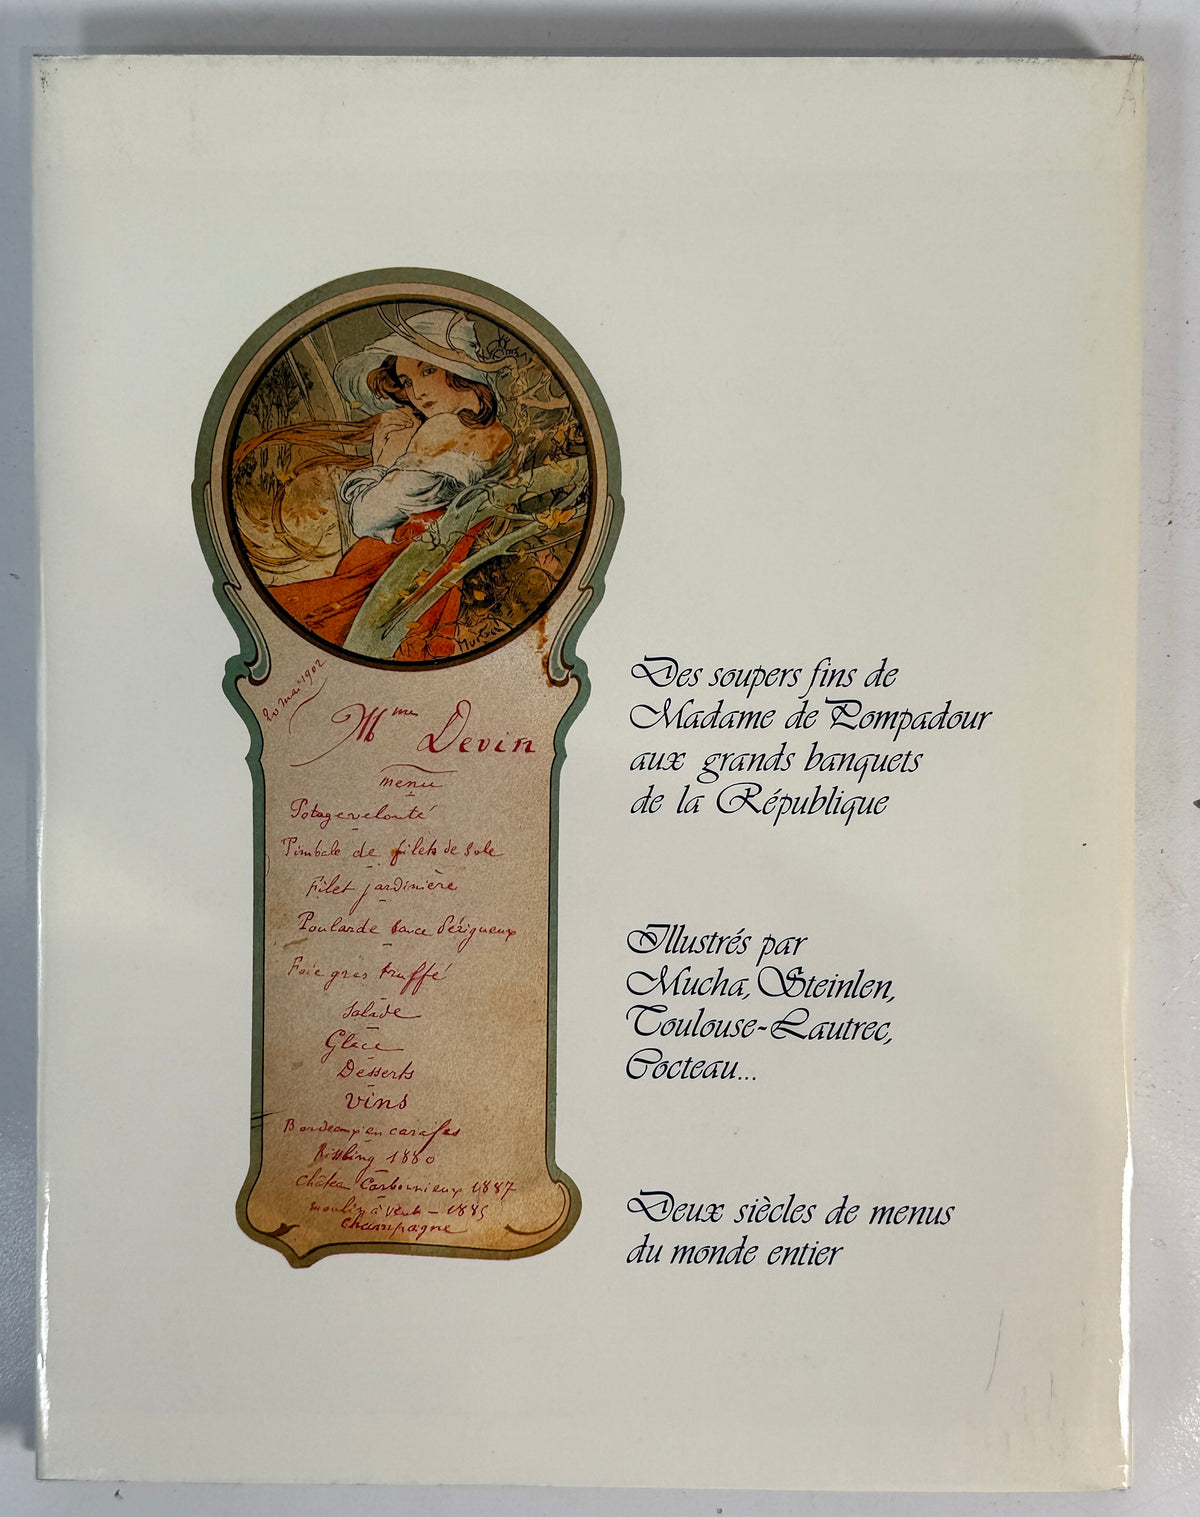 Mucha
20 mai 1902
Mme Devin
menu
Potage velouté
Timbale de filets de sole
Filet jardinière
Poularde sauce Périgueux
Foie gras truffé
Salade
Glace
Desserts
Vins
Bordeaux en carafes
Rissling 1880
Château Carbonnieux 1887
moulin à vent - 1885
Champagne
Des soupers fins de
Madame de Pompadour
aux grands banquets
de la République
Illustrés par
Mucha, Steinlen,
Toulouse-Lautrec,
Cocteau...
Deux siècles de menus
du monde entier